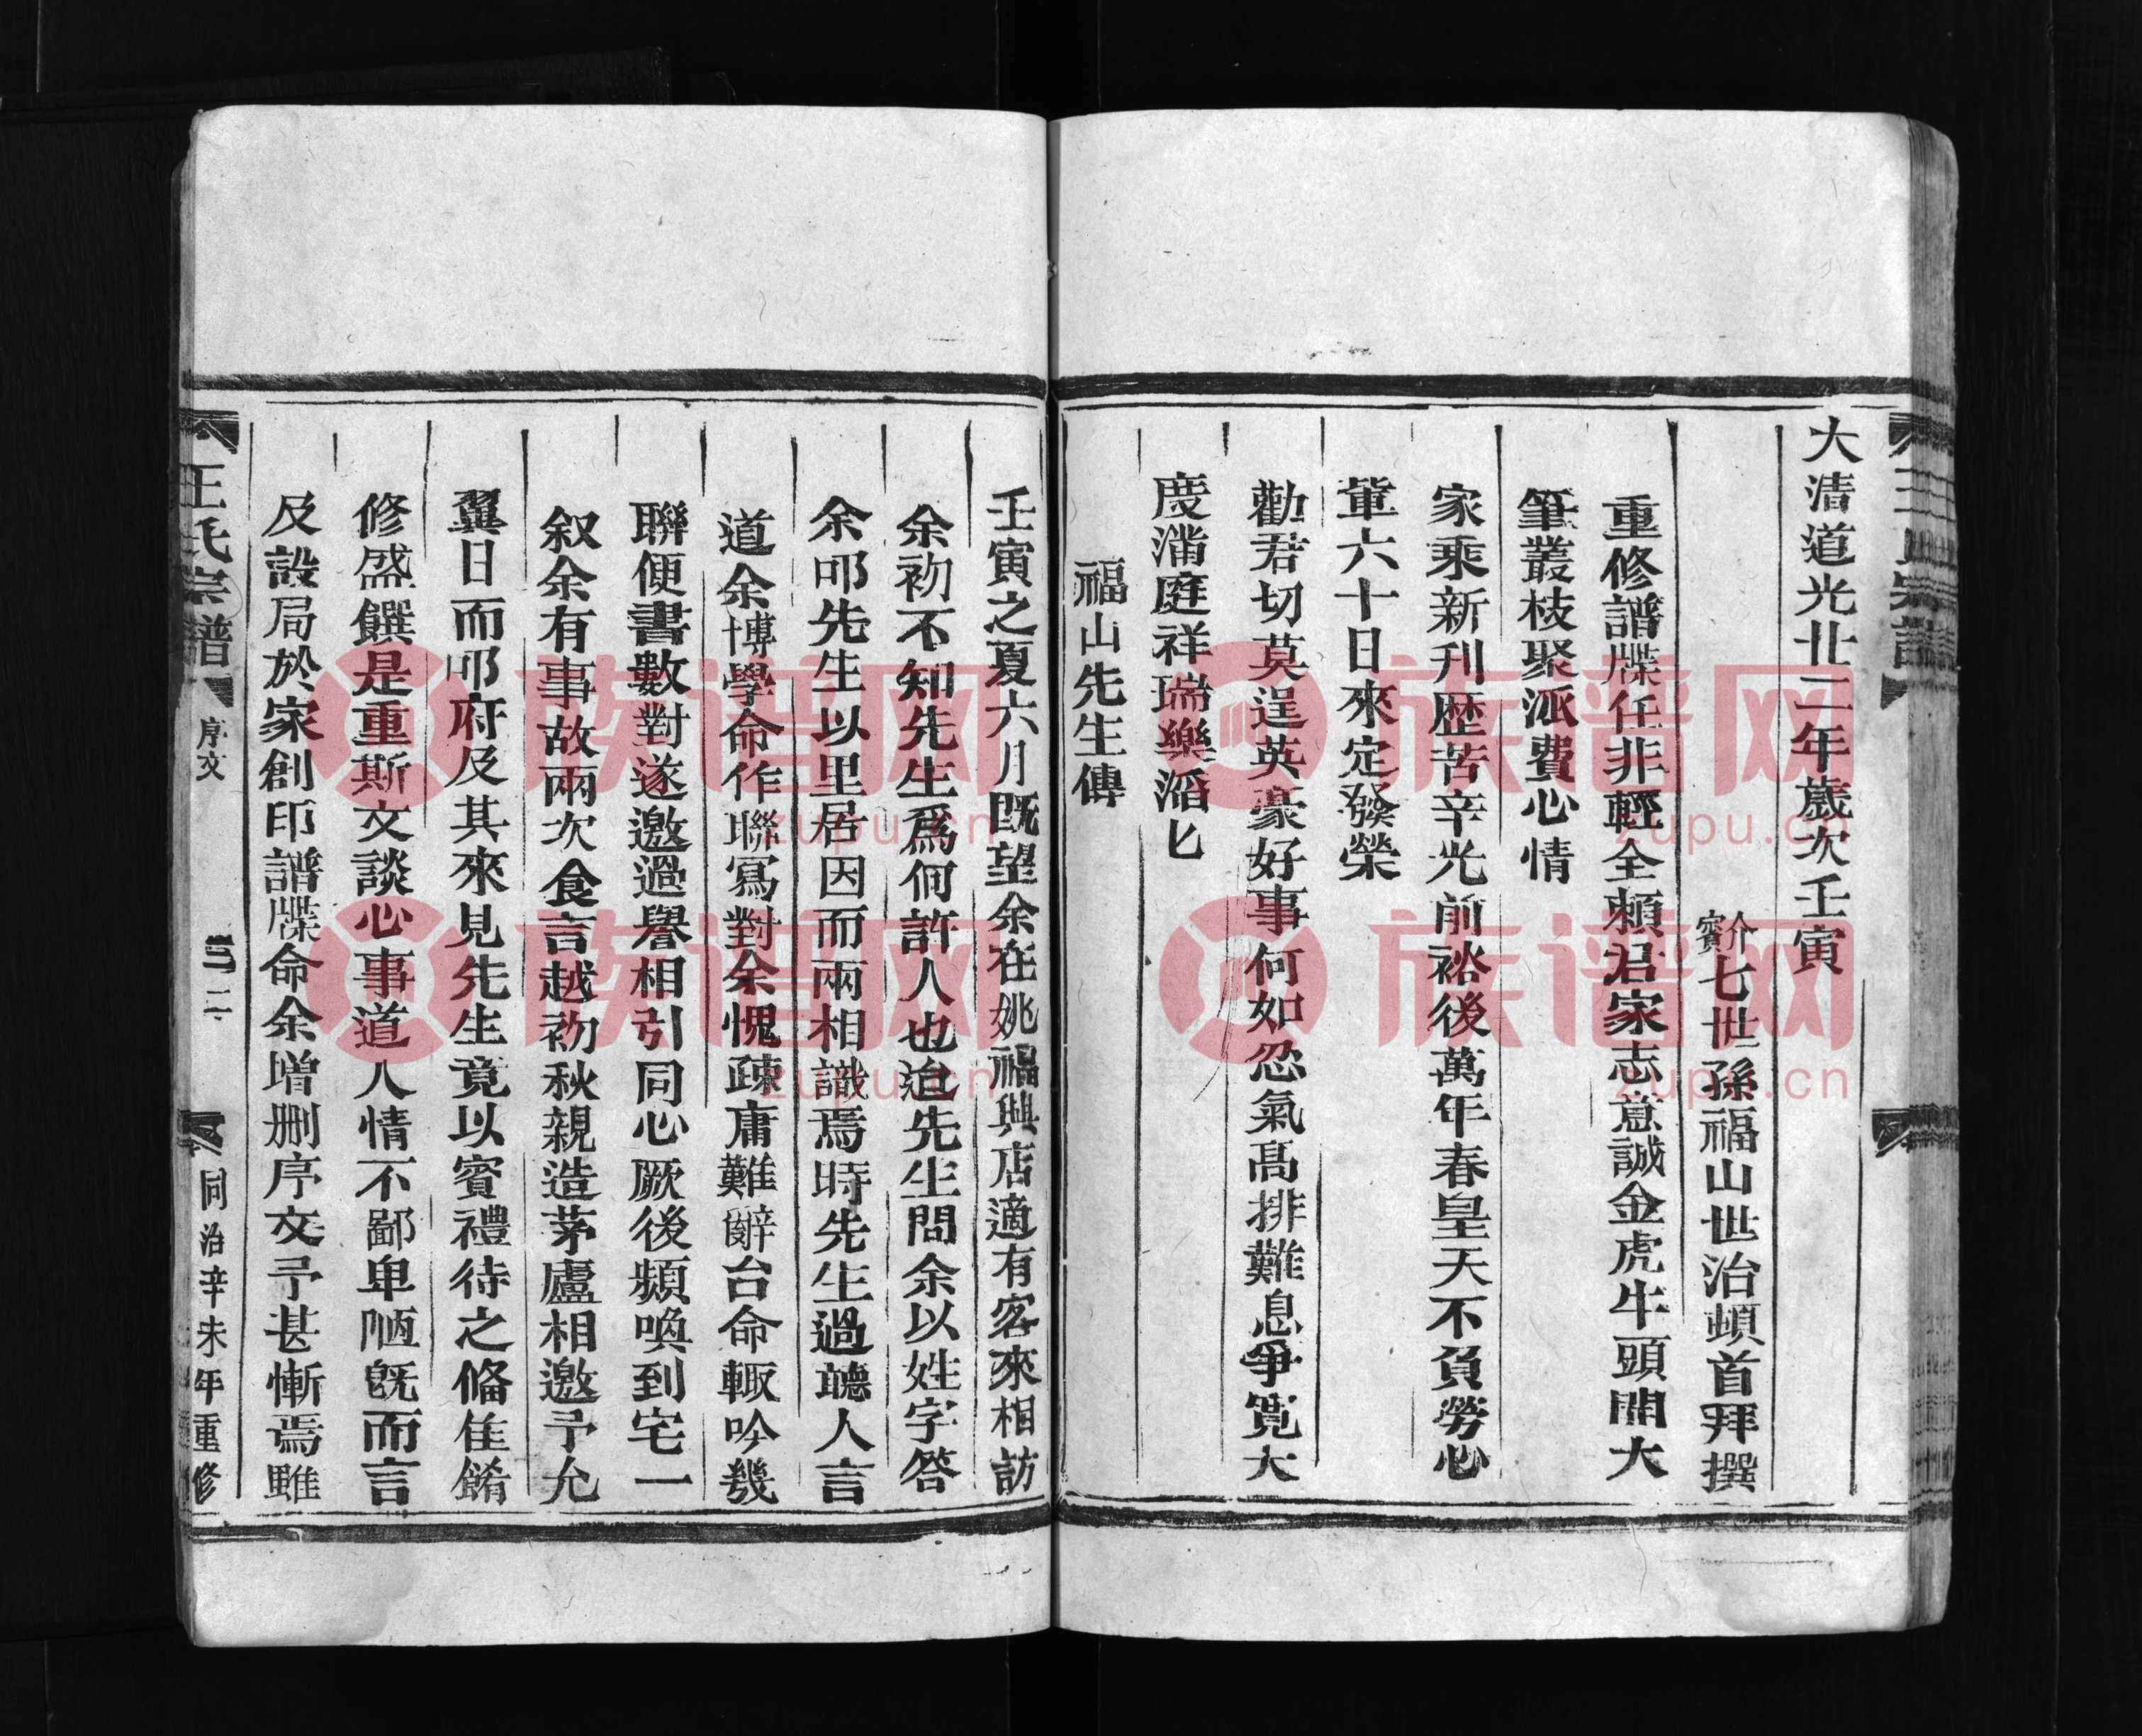 大清道光廿二年歲次壬寅
介賓七世孫福山世治頓首拜撰
重修譜牒任非輕全賴君家志意誠金虎牛頭開大
筆叢枝聚派費心情
家乘新刊歷苦辛光前裕後萬年春皇天不負勞心
輩六十日來定發榮
勸君切莫逞英豪好事何如忍氣高排難息爭寬大
度滿庭祥瑞樂滔匕
福山先生傳
壬寅之夏六月既望余在姚福興店適有客來相訪
余初不知先生爲何許人也迨先生問余以姓字答
余叩先生以里居因而兩相識焉時先生過聽人言
道余博學命作聯寫對余愧疎庸難辭台命輙吟幾
聯便書數對遂邀過譽相引同心厥後頻喚到宅一
叙余有事故兩次食言越初秋親造茅廬相邀予允
翼日而叩府及其來見先生竟以賓禮待之脩佳餚
修盛饌是重斯文談心事道人情不鄙卑陋既而言
及設局於家創印譜牒命余增刪序文予甚慚焉雖
王氏宗譜
序文
三
二
同治辛未年重修
族谱网
zupu.cn
族谱网
zupu.cn
族谱网
zupu.cn
族谱网
zupu.cn